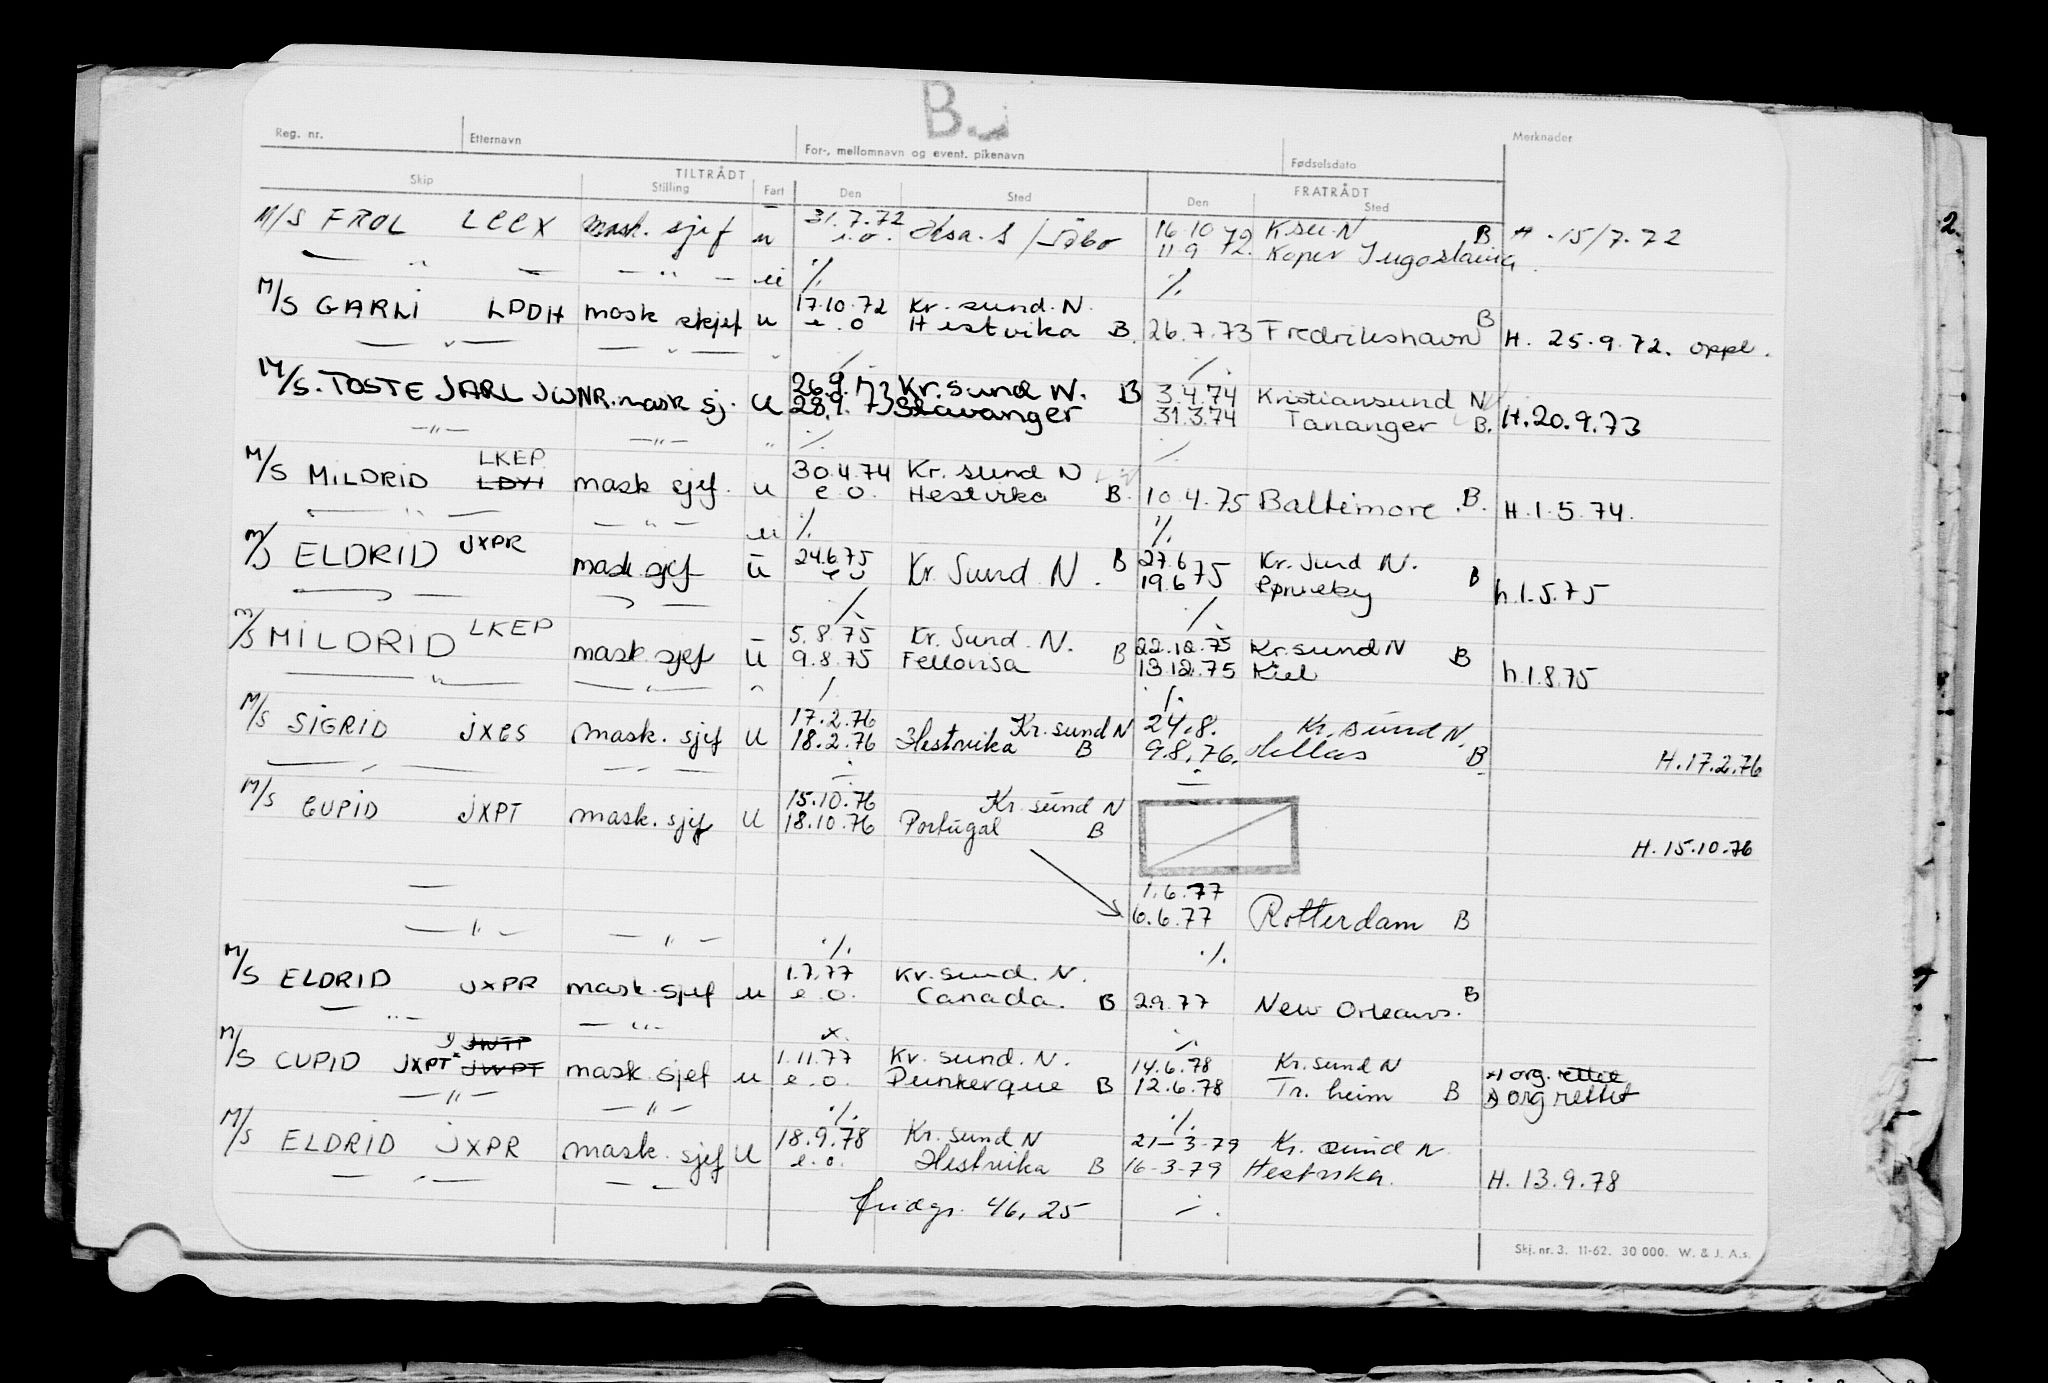 B.
Reg. nr. Etternavn For-, mellomnavn og event. pikenavn Fødselsdato Merknader
TILTRÅDT FRATRÅDT
Skip Stilling Fart Den Sted Den Sted
M/S FROL LCCX mask. sjef u 31.7.72 16.10.72 Ksu N B H. 15/7.72
e.o. 11.9.72. Koper Jugoslavia
— " — — " — " % %
M/S GARLI LPDH mask skjef u 17.10.72 Kr. sund. N. B
e.o Hestvika B. 26.7.73 Fredrikshavn H. 25.9.72. oppl.
— " — — " — " % %
M/S. TOSTE JARL JWNR. mask sj. U 26.9.73 Kr. sund N. B 3.4.74 Kristiansund N
28.9.73 Stavanger 31.3.74 Tananger B. H. 20.9.73
— " — — " — " % %
LKEP
M/S MILDRID LDYI mask sjef. u 30.4.74 Kr. sund N
e.o. Hestvika B. 10.4.75 Baltimore. B. H. 1.5.74.
— " — — " — " % %
M/S ELDRID JXPR mask sjef u 24.6.75 Kr. Sund N. B 27.6 Kr. Sund N.
e o 19.6.75 B h. 1.5.75
% %
M/S MILDRID LKEP mask sjef u 5.8.75 Kr. Sund. N. 22.12.75 Kr. sund N B
9.8.75 B 13.12.75 Kiel h. 1.8.75
— " — — " — " % %
M/S SIGRID JXGS mask. sjef u 17.2.76 Kr. sund N 24.8. Kr. sund N.
18.2.76 Hestvika B 9.8.76. Hellas B H. 17.2.76
M/S CUPID JXPT mask. sjef u 15.10.76 Kr. sund N
18.10.76 Portugal B H. 15.10.76
— 1.6.77
6.6.77 Rotterdam B
— " — — " — % %
M/S ELDRID JXPR mask. sjef u 1.7.77 Kr. sund. N. B
e.o. Canada. B 2.9.77 New Orleans.
— " — — " — %
JWTP
M/S CUPID JXPT JWPT mask sjef u 1.11.77 Kr. sund. N. 14.6.78 Kr. sund N x) org. rettet
e.o. Dunkerque B 12.6.78 Tr. heim B x) org rettet
— " — — " — % %
M/S ELDRID JXPR mask. sjef U 18.9.78 Kr. sund N 21-3-79 Kr. sund N.
e.o. Hestvika B 16-3-79 Hestvika. H. 13.9.78
— " — — " —
fridgr. 46,25 %
Skj. nr. 3. 11-62. 30 000. W. & J. A.s.
2.